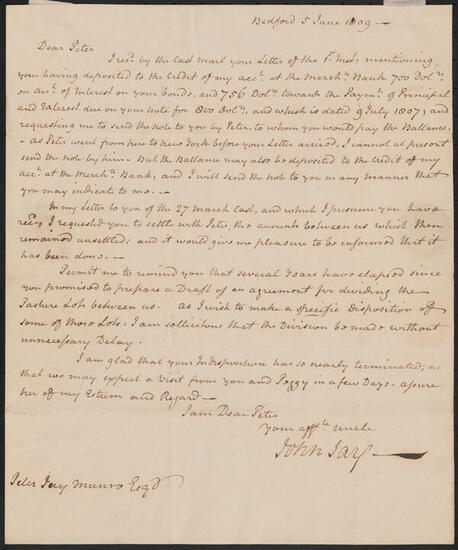 Bedford 5 June 1809 —
Dear Peter
I recd. by the last mail your Letter of the 1st. Inst: mentioning
your having deposited to the Credit of my acct. at the Mercht. Bank 700 Dolrs.
on acct. of Interest on your bonds, and 756 Dolrs. towards the Paymt. of Principal
and Interest due on your note for 800 Dolrs., and which is dated 9 July 1807; and
requesting me to send the note to you by Peter, to whom you would pay the Ballance.
- as Peter went from here to New York before your Letter arrived, I cannot at present
send the note by him - But the Ballance may also be deposited to the Credit of my
acct. at the Mercht. Bank, and I will send the note to you in any manner that
you may indicate to me. —
In my Letter to you of the 27 March last, and which I presume you have
recd., I requested you to settle with Peter, the accounts between us which then
remained unsettled; and it would give me pleasure to be informed that it
has been done. —
Permit me to remind you that several Years have elapsed since
you promised to prepare a Draft of an agreement for dividing the
Pasture Lots between us. as I wish to make a specific Disposition of
some of those Lots, I am sollicitous that the Division be made without
unnecessary Delay.
I am glad that your Indisposition has so nearly terminated, as
that we may expect a Visit from you and Peggy in a few Days - assure
her of my Esteem and Regard —
I am Dear Peter
Your affte. uncle
John Jay —
Peter Jay Munro Esqr.